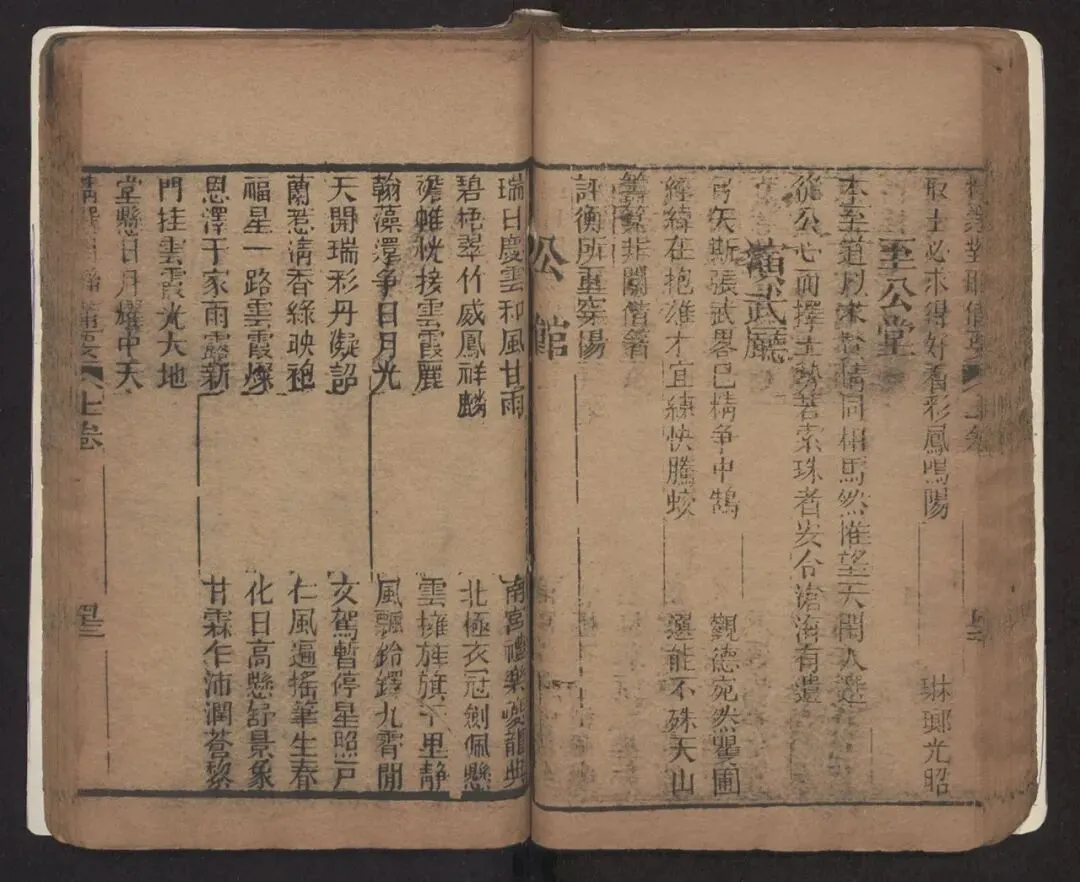 取士必求得好看彩鳳鳴陽　琳瑯光昭
至公堂
本至道以求賢情同相馬然惟望天閑入選
從公心而擇士勢若索珠者莫令滄海有遺
演武廳
弓矢斯張武畧已精爭中鵠　觀德宛然矍圃
經綸在抱雄才宜練快騰蛟　選能不殊天山
籌算非關借箸
評衡所重穿陽
公館
瑞日慶雲和風甘雨　南宮禮樂夔龍典
碧梧翠竹威鳳祥麟　北極衣冠劍佩懸
襜帷恍接雲霞麗　雲擁旌旗千里靜
翰藻澤爭日月光　風飄鈴鐸九霄聞
天開瑞彩丹凝詔　文駕暫停星照戶
蘭惹清香綠映袍　仁風遍搖筆生春
福星一路雲霞燦　化日高懸舒景象
恩澤千家雨露新　甘霖乍沛潤蒼黎
門挂雲霞光大地
堂懸日月耀中天
上卷